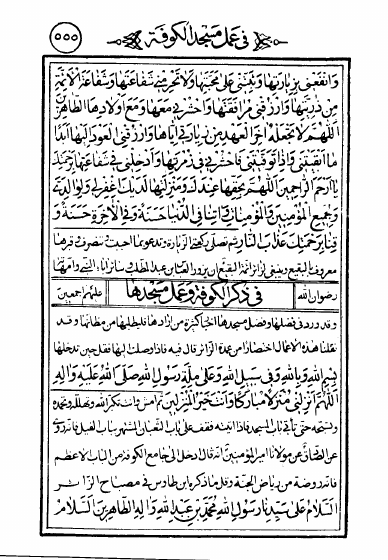 في عمل مسجد الكوفة
٥٥٥
وانفعني بزيارتها وثبتني على محبتها ولا تحرمني شفاعتها وشفاعة الأئمة
من ذريتها وارزقني مرافقتها واحشرني معها ومع أولادها الطاهرين
اللهم لا تجعله آخر العهد من زيارتي إياها وارزقني العود إليها أبدا
ما أبقيتني وإذا توفيتني فاحشرني في زمرتها وأدخلني في شفاعتها برحمتك
يا أرحم الراحمين اللهم بحقها عندك ومنزلتها لديك اغفر لي ولوالدي
ولجميع المؤمنين والمؤمنات وآتنا في الدنيا حسنة وفي الآخرة حسنة و
قنا برحمتك عذاب النار ثم تصلي ركعتي الزيارة وتدعو بما أحببت وتنصرف قبرها
معروف بالبقيع وينبغي لزائر أئمة البقيع أن يزور
رضوان الله
في ذكر الكوفة وعمل مسجدها
عليهم أجمعين
وقد ورد في فضلها وفضل مسجدها أخبار كثيرة من أرادها فليطلبها من مظانها وقد
نقلنا هذه الأعمال اختصارا من عمدة الزائر قال فيه فإذا وصلت إليها فقل حين تدخلها
بسم الله وبالله وفي سبيل الله وعلى ملة رسول الله صلى الله عليه وآله
اللهم أنزلني منزلا مباركا وأنت خير المنزلين ثم امش وأنت تكبر الله وتهلله وتحمده
وتسبحه حتى تأتي باب المسجد فإذا أتيته فقف على باب الثعبان المشتهر بباب الفيل فإنه روي
عن مولانا أمير المؤمنين أنه قال ادخل إلى جامع الكوفة من الباب الأعظم
فإنه روضة من رياض الجنة وقل ما ذكره ابن طاوس في مصباح الزائر
السلام على سيدنا رسول الله محمد بن عبد الله وآله الطاهرين السلام